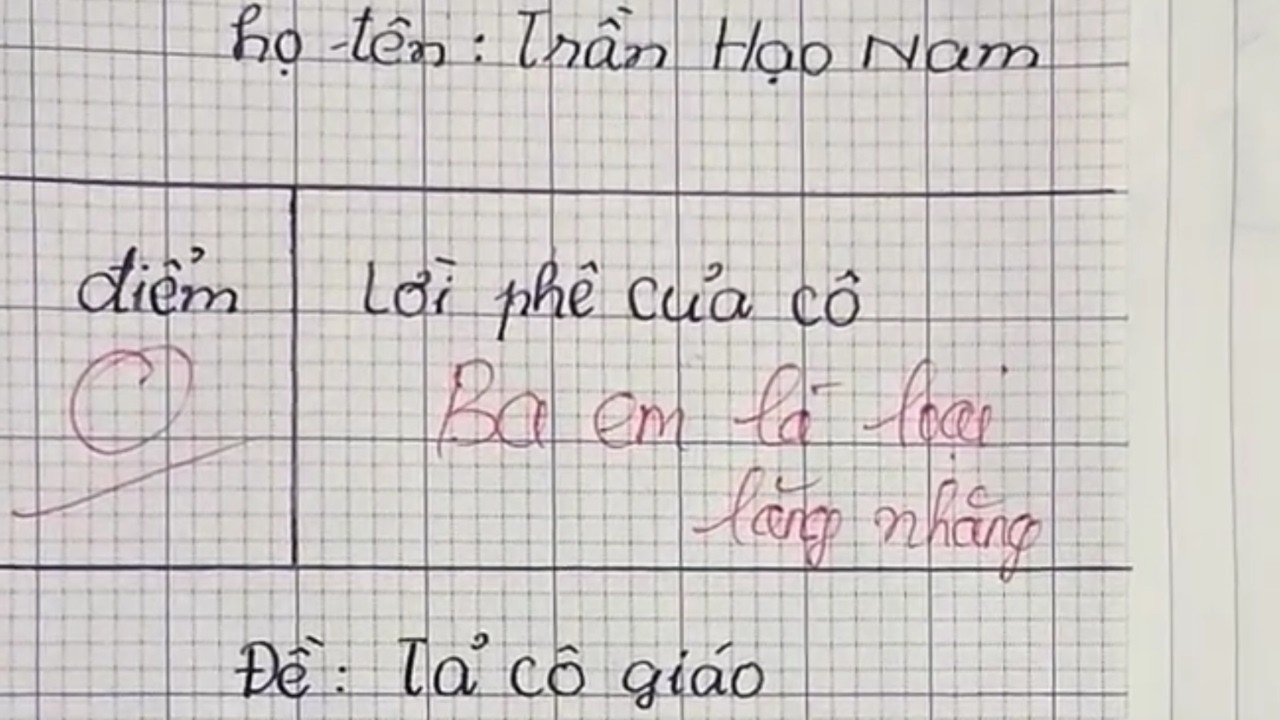 họ tên: Trần Hạo Nam
điểm
Lời phê của cô
0
Ba em là loại
lăng nhăng
Đề: Tả cô giáo